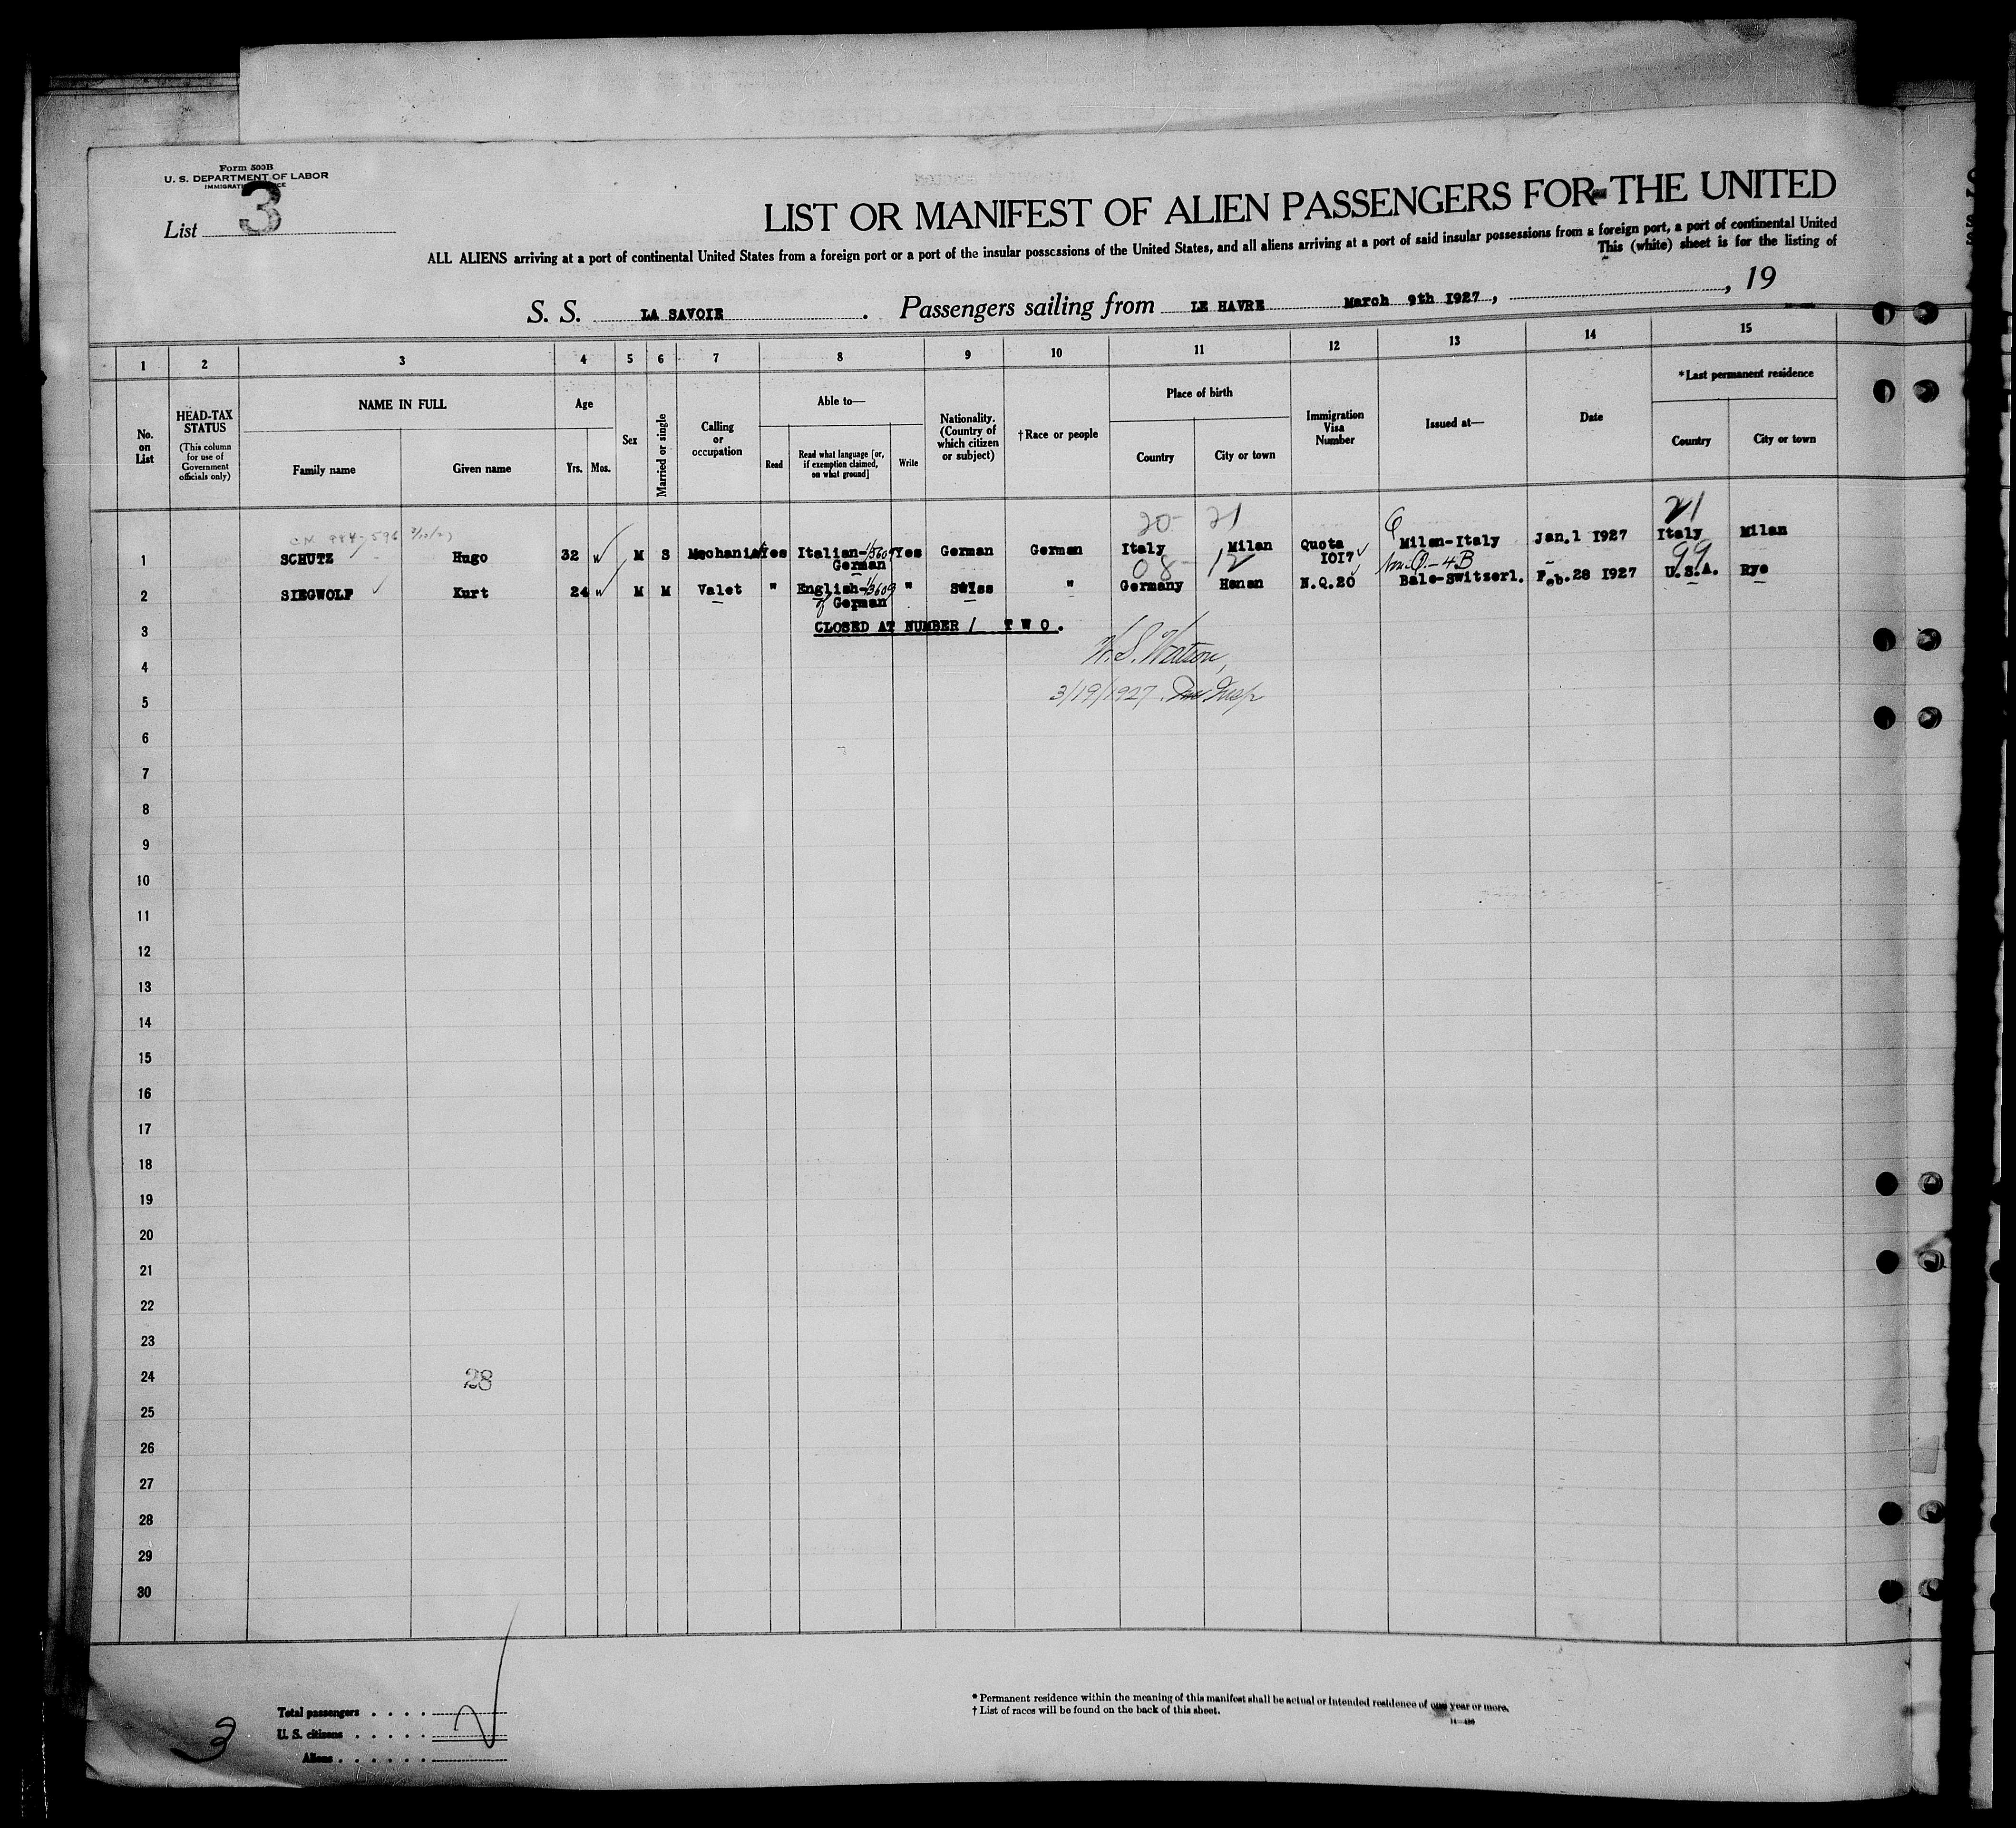 Form 500B
U. S. DEPARTMENT OF LABOR
List 3
LIST OR MANIFEST OF ALIEN PASSENGERS FOR THE UNITED
ALL ALIENS arriving at a port of continental United States from a foreign port or a port of the insular possessions of the United States, and all aliens arriving at a port of said insular possessions from a foreign port, a port of continental United
This (white) sheet is for the listing of
S. S. LA SAVOIE . Passengers sailing from LE HAVRE March 9th 1927, , 19
1 2 3 4 5 6 7 8 9 10 11 12 13 14 15
No. on List
HEAD-TAX STATUS (This column for use of Government officials only)
NAME IN FULL
Family name Given name
Age
Yrs. Mos.
Sex
Married or single
Calling or occupation
Able to—
Read
Read what language [or, if exemption claimed, on what ground]
Write
Nationality. (Country of which citizen or subject)
†Race or people
Place of birth
Country City or town
Immigration Visa Number
Issued at—
Date
*Last permanent residence
Country City or town
20 21 21
1 SCHUTZ Hugo 32 M S Mechanic Yes Italian- Yes German German Italy Milan Quota Milan-Italy Jan.1 1927 Italy Milan
German 1017
08 12 99
2 SIEGWOLF Kurt 24 M M Valet " English- " Swiss " Germany Hanan N.Q.20 Bale-Switzerl. Feb.28 1927 U.S.A. Rye
German
3 CLOSED AT NUMBER / T W O .
4 W. S. Watson,
5 3/19/1927. Insp
6
7
8
9
10
11
12
13
14
15
16
17
18
19
20
21
22
23
24 28
25
26
27
28
29
30
Total passengers
U. S. citizens
Aliens
3
* Permanent residence within the meaning of this manifest shall be actual or intended residence of one year or more.
† List of races will be found on the back of this sheet.